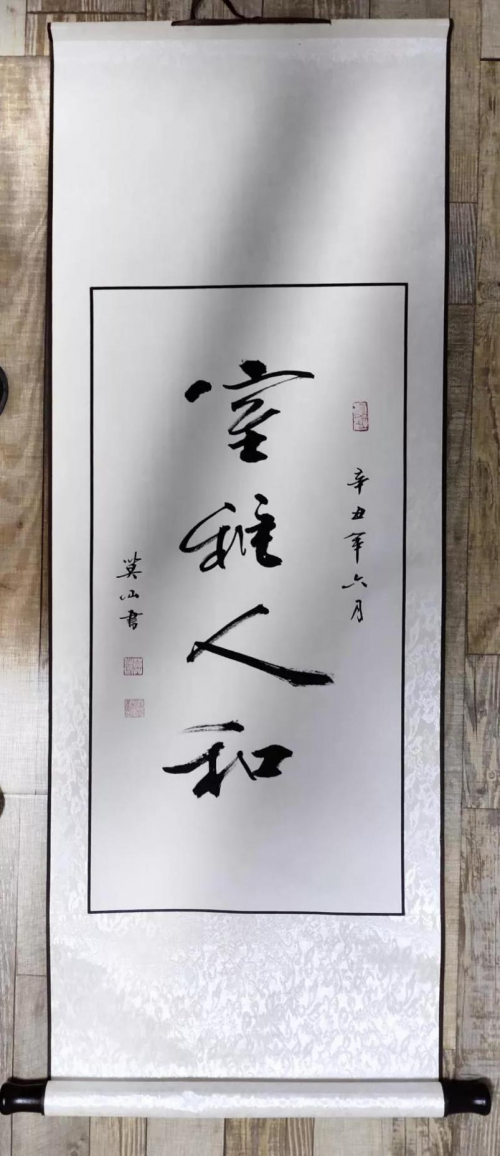 辛丑年六月
室雅人和
莫山書